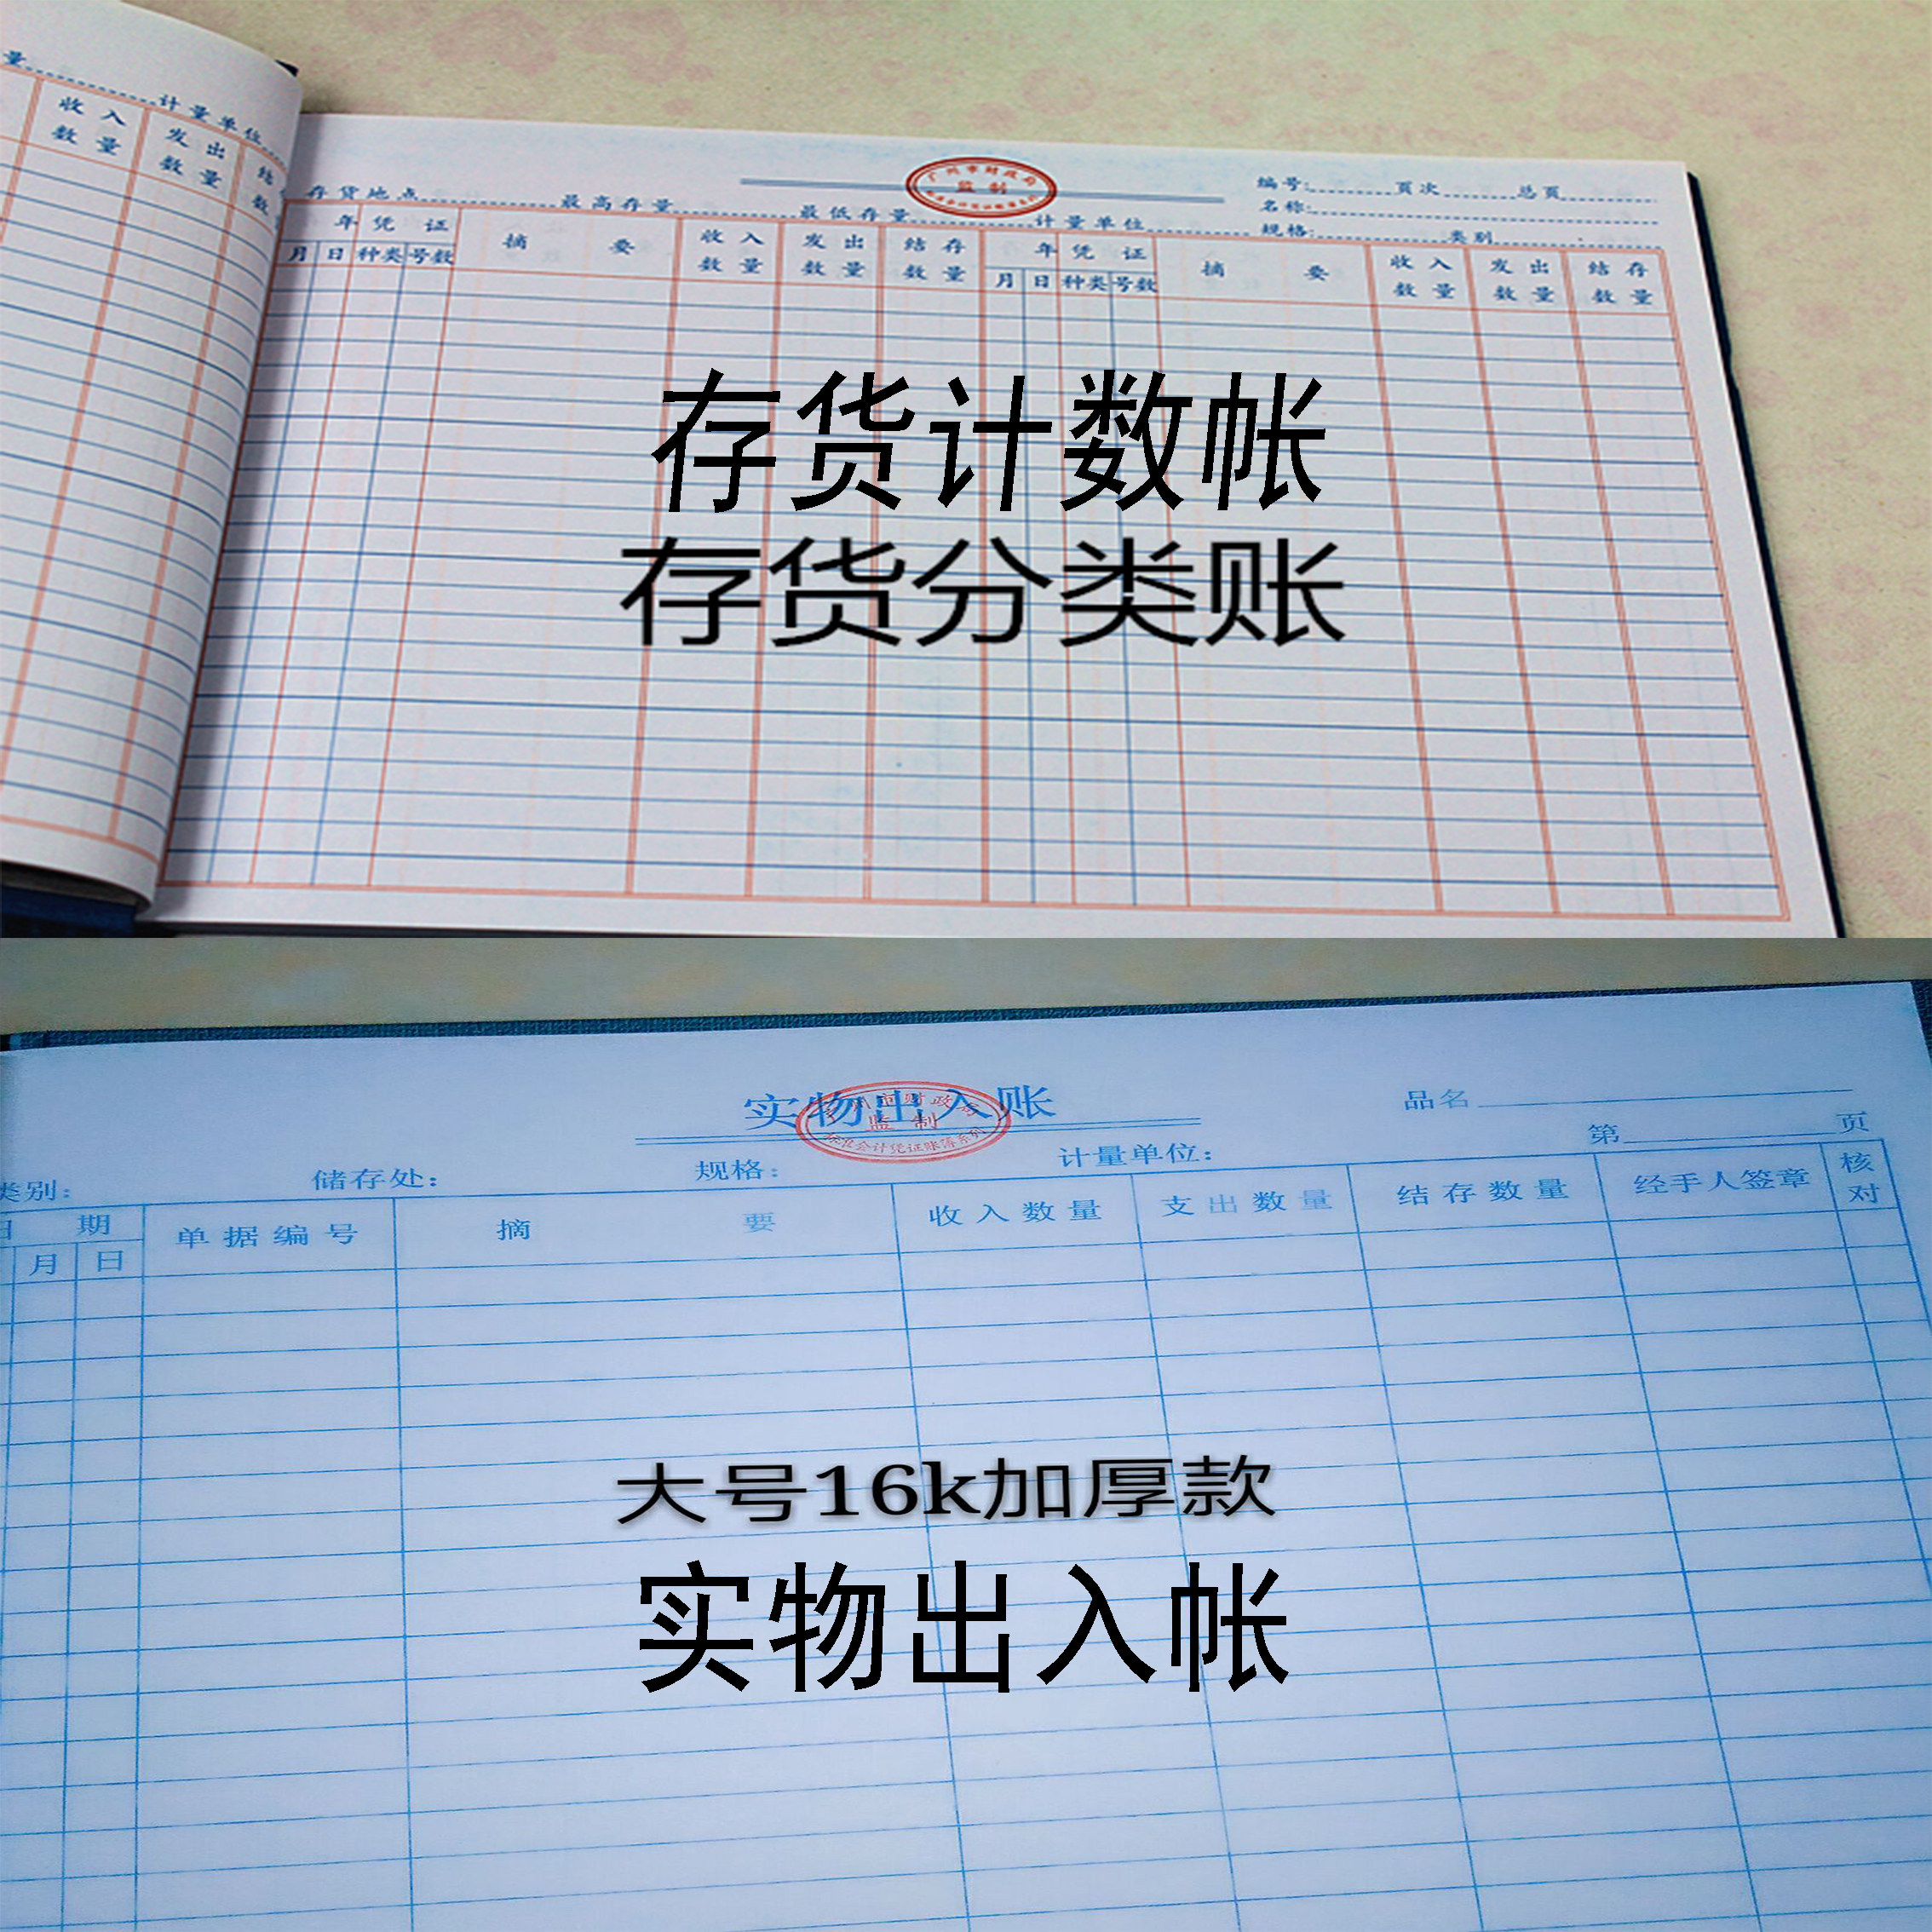 量 计量单位
收入 发出 结
数量 数量 数
广州市财政局
监制
编号: 页次 总页
名称:
存货地点 最高存量 最低存量 计量单位 规格: 类别
年 凭证 摘要 收入 发出 结存 年 凭证 摘要 收入 发出 结存
月 日 种类 号数 数量 数量 数量 月 日 种类 号数 数量 数量 数量
存货计数帐
存货分类账
实物出入账
市财政局
监制
标准会计凭证账簿系列
品名
第 页
类别: 储存处: 规格: 计量单位:
日期 单据编号 摘要 收入数量 支出数量 结存数量 经手人签章 核对
月 日
大号16k加厚款
实物出入帐